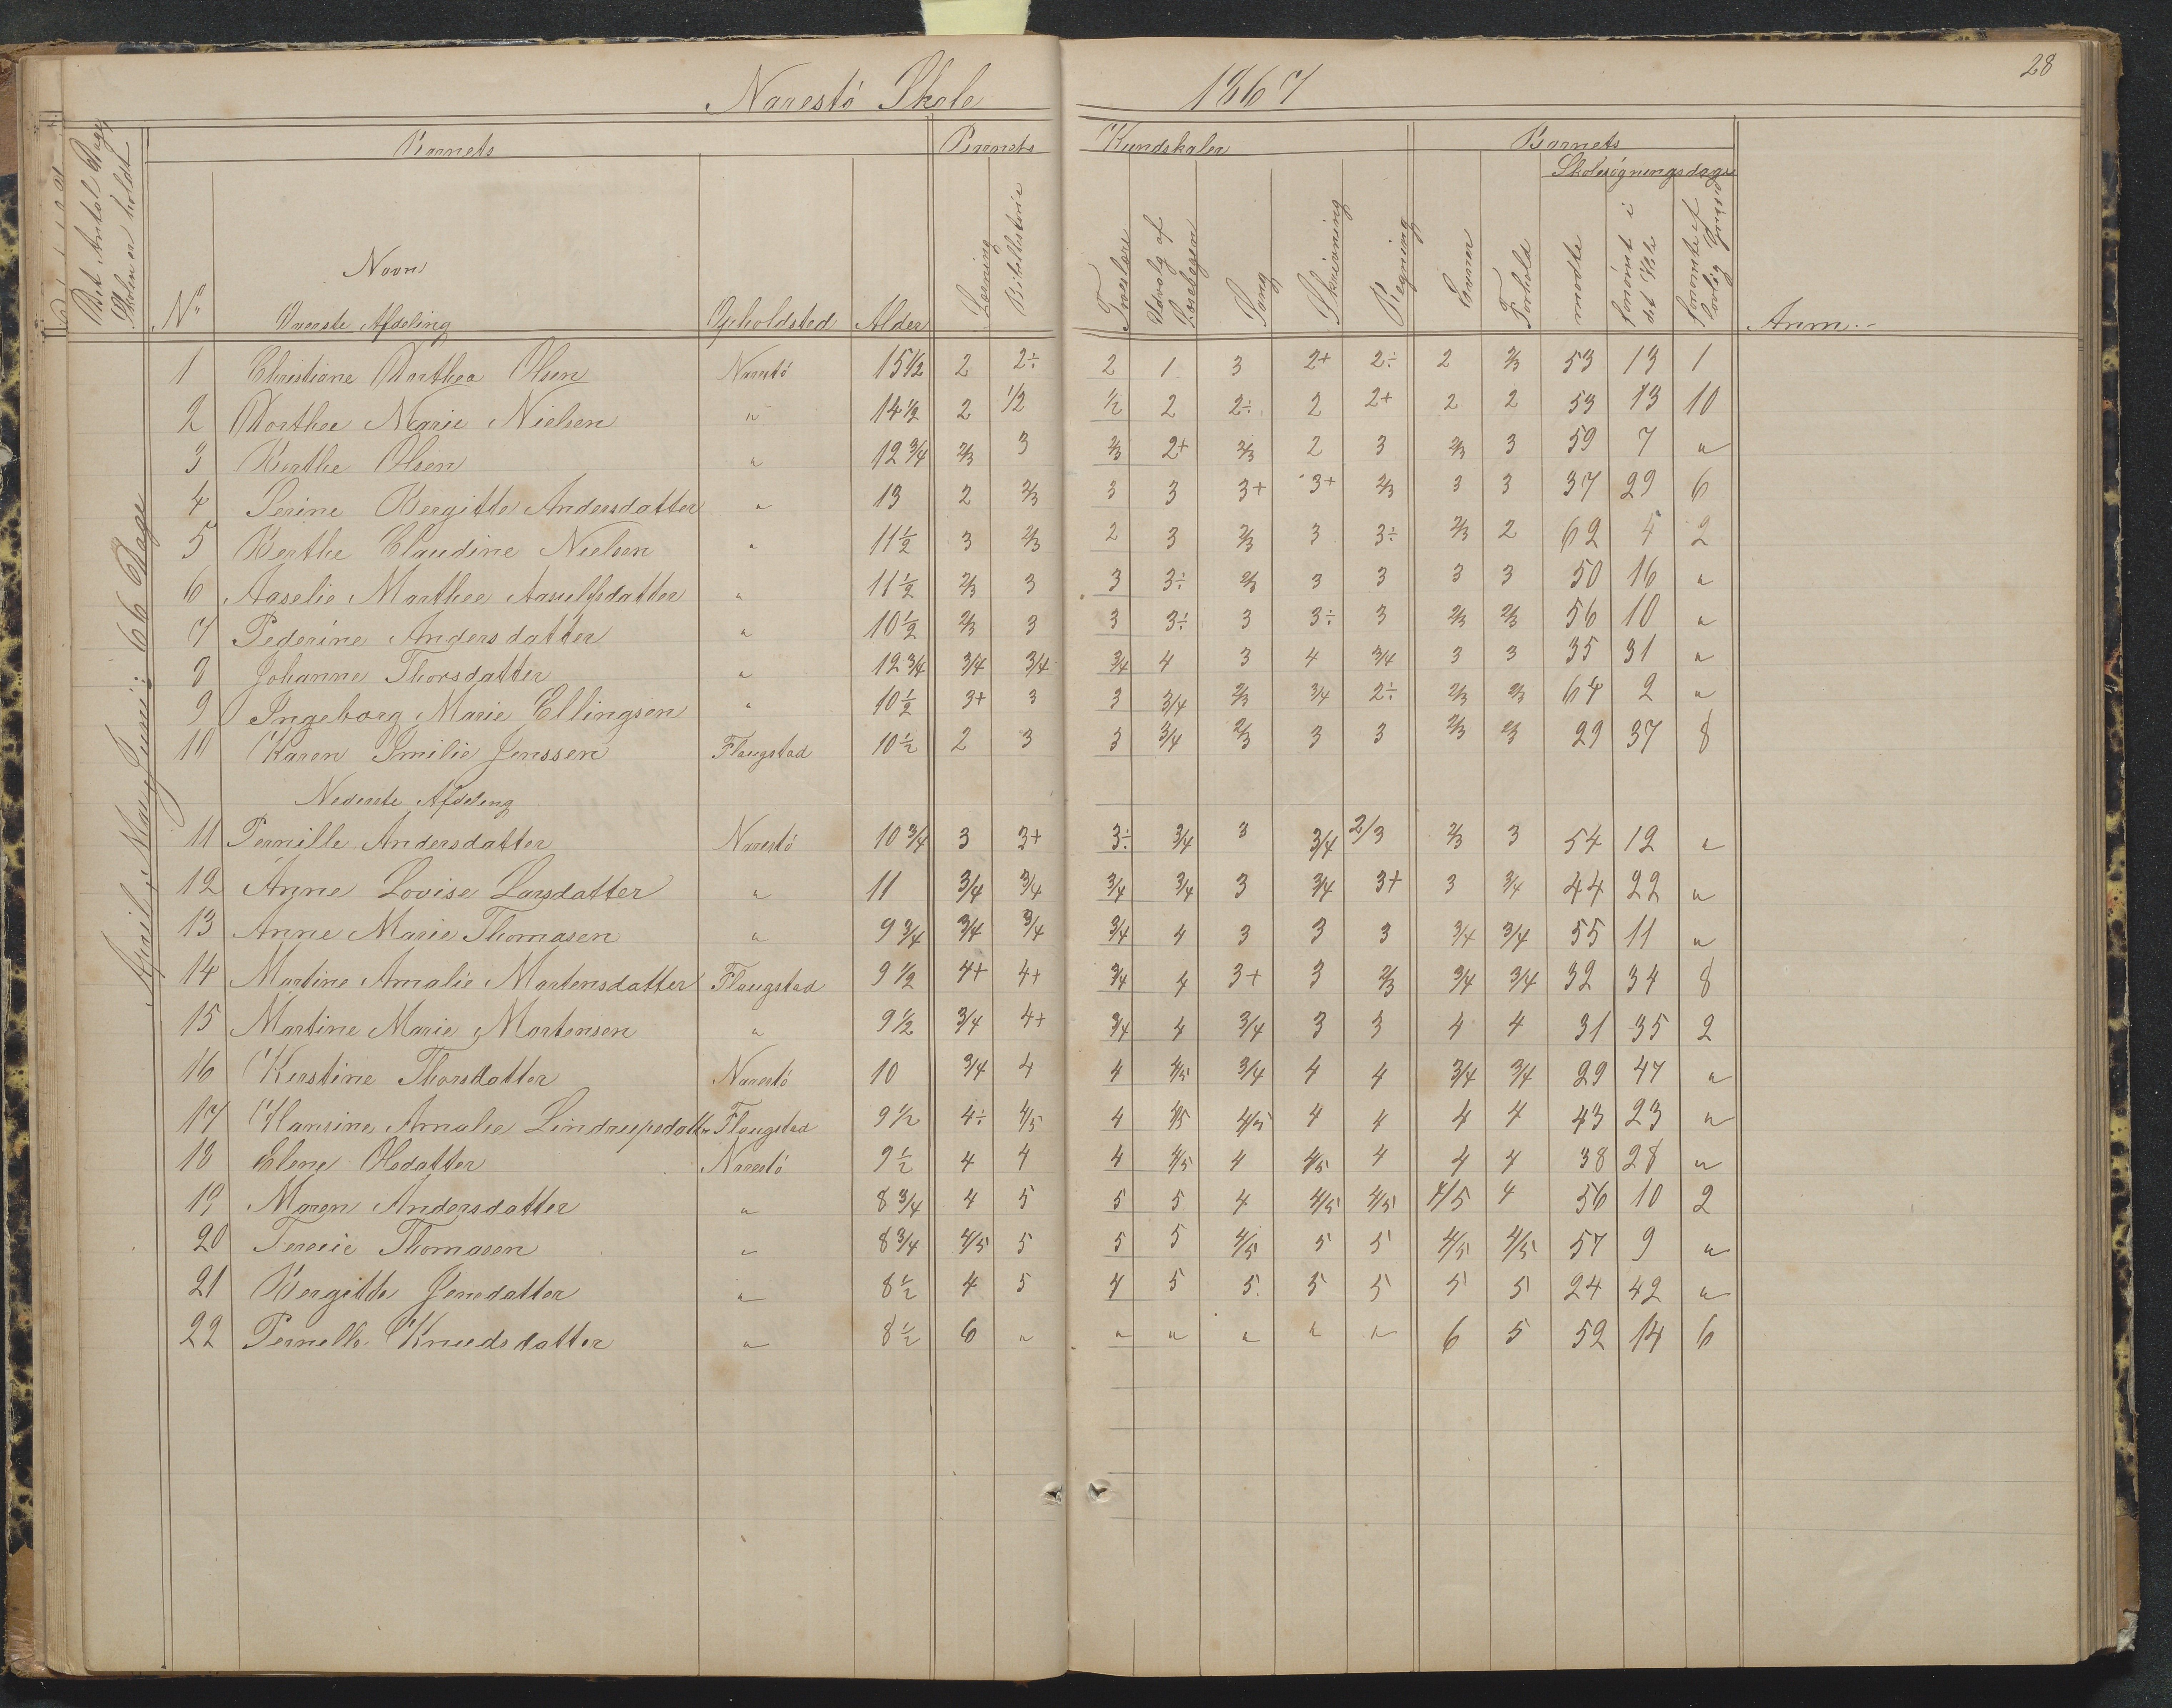 28
Narestö Skole 1867
Barnets Barnets Kundskaber Barnets
Skolesögningsdage
Det Antal Dage
Skolen er holdt
No
Navn
Øverste Afdeling
Opholdsted Alder Læsning Bibelhistorie Troeslære Udvalg af Læsebogen Sang Skrivning Regning Evner Forhold mødte forsömt i det Hele forsömte af lovlig Grund Anm.
April, Mai, Juni: 66 Dage
1 Christiane Dorthea Olsen Narestö 15 1/2 2 2÷ 2 1 3 2+ 2÷ 2 2/3 53 13 1
2 Dorthee Marie Nielsen " 14 1/2 2 1/2 1/2 2 2÷ 2 2+ 2 2 53 13 10
3 Berthe Olsen " 12 3/4 2/3 3 2/3 2+ 2/3 2 3 2/3 3 59 7 "
4 Serine Bergitte Andersdatter " 13 2 2/3 3 3 3+ 3+ 2/3 3 3 37 29 6
5 Berthe Claudine Nielsen " 11 1/2 3 2/3 2 3 2/3 3 3÷ 2/3 2 62 4 2
6 Aaselie Marthee Aasulfsdatter " 11 1/2 2/3 3 3 3÷ 2/3 3 3 3 3 50 16 "
7 Pederine Andersdatter " 10 1/2 2/3 3 3 3÷ 3 3÷ 3 2/3 2/3 56 10 "
8 Johanne Thorsdatter " 12 3/4 3/4 3/4 3/4 4 3 4 3/4 3 3 35 31 "
9 Ingeborg Marie Ellingsen " 10 1/2 3+ 3 3 3/4 2/3 3/4 2÷ 2/3 2/3 64 2 "
10 Karen Emilie Jenssen Flaugstad 10 1/2 2 3 3 3/4 2/3 3 3 2/3 2/3 29 37 8
Nederste Afdeling
11 Pernille Andersdatter Narestö 10 3/4 3 3+ 3÷ 3/4 3 3/4 2/3 2/3 3 54 12 "
12 Anne Lovise Larsdatter " 11 3/4 3/4 3/4 3/4 3 3/4 3+ 3 3/4 44 22 "
13 Anne Marie Thomasen " 9 3/4 3/4 3/4 3/4 4 3 3 3 3/4 3/4 55 11 "
14 Martine Amalie Mortensdatter Flaugstad 9 1/2 4+ 4+ 3/4 4 3+ 3 2/3 3/4 3/4 32 34 8
15 Martine Marie Mortensen " 9 1/2 3/4 4+ 3/4 4 3/4 3 3 4 4 31 35 2
16 Kirstine Thorsdatter Narestö 10 3/4 4 4 4/5 3/4 4 4 3/4 3/4 29 47 "
17 Hansine Amalie Lindrupsdatter Flaugstad 9 1/2 4÷ 4/5 4 4/5 4/5 4 4 4 4 43 23 "
18 Elene Olsdatter Narestö 9 1/2 4 4 4 4/5 4 4/5 4 4 4 38 28 "
19 Maren Andersdatter " 8 3/4 4 5 5 5 4 4/5 4/5 4/5 4 56 10 2
20 Teresie Thomasen " 8 3/4 4/5 5 5 5 4/5 5 5 4/5 4/5 57 9 "
21 Bergitte Jensdatter " 8 1/2 4 5 4 5 5 5 5 5 5 24 42 "
22 Pernelle Knudsdatter " 8 1/2 6 " " " " " " 6 5 52 14 6